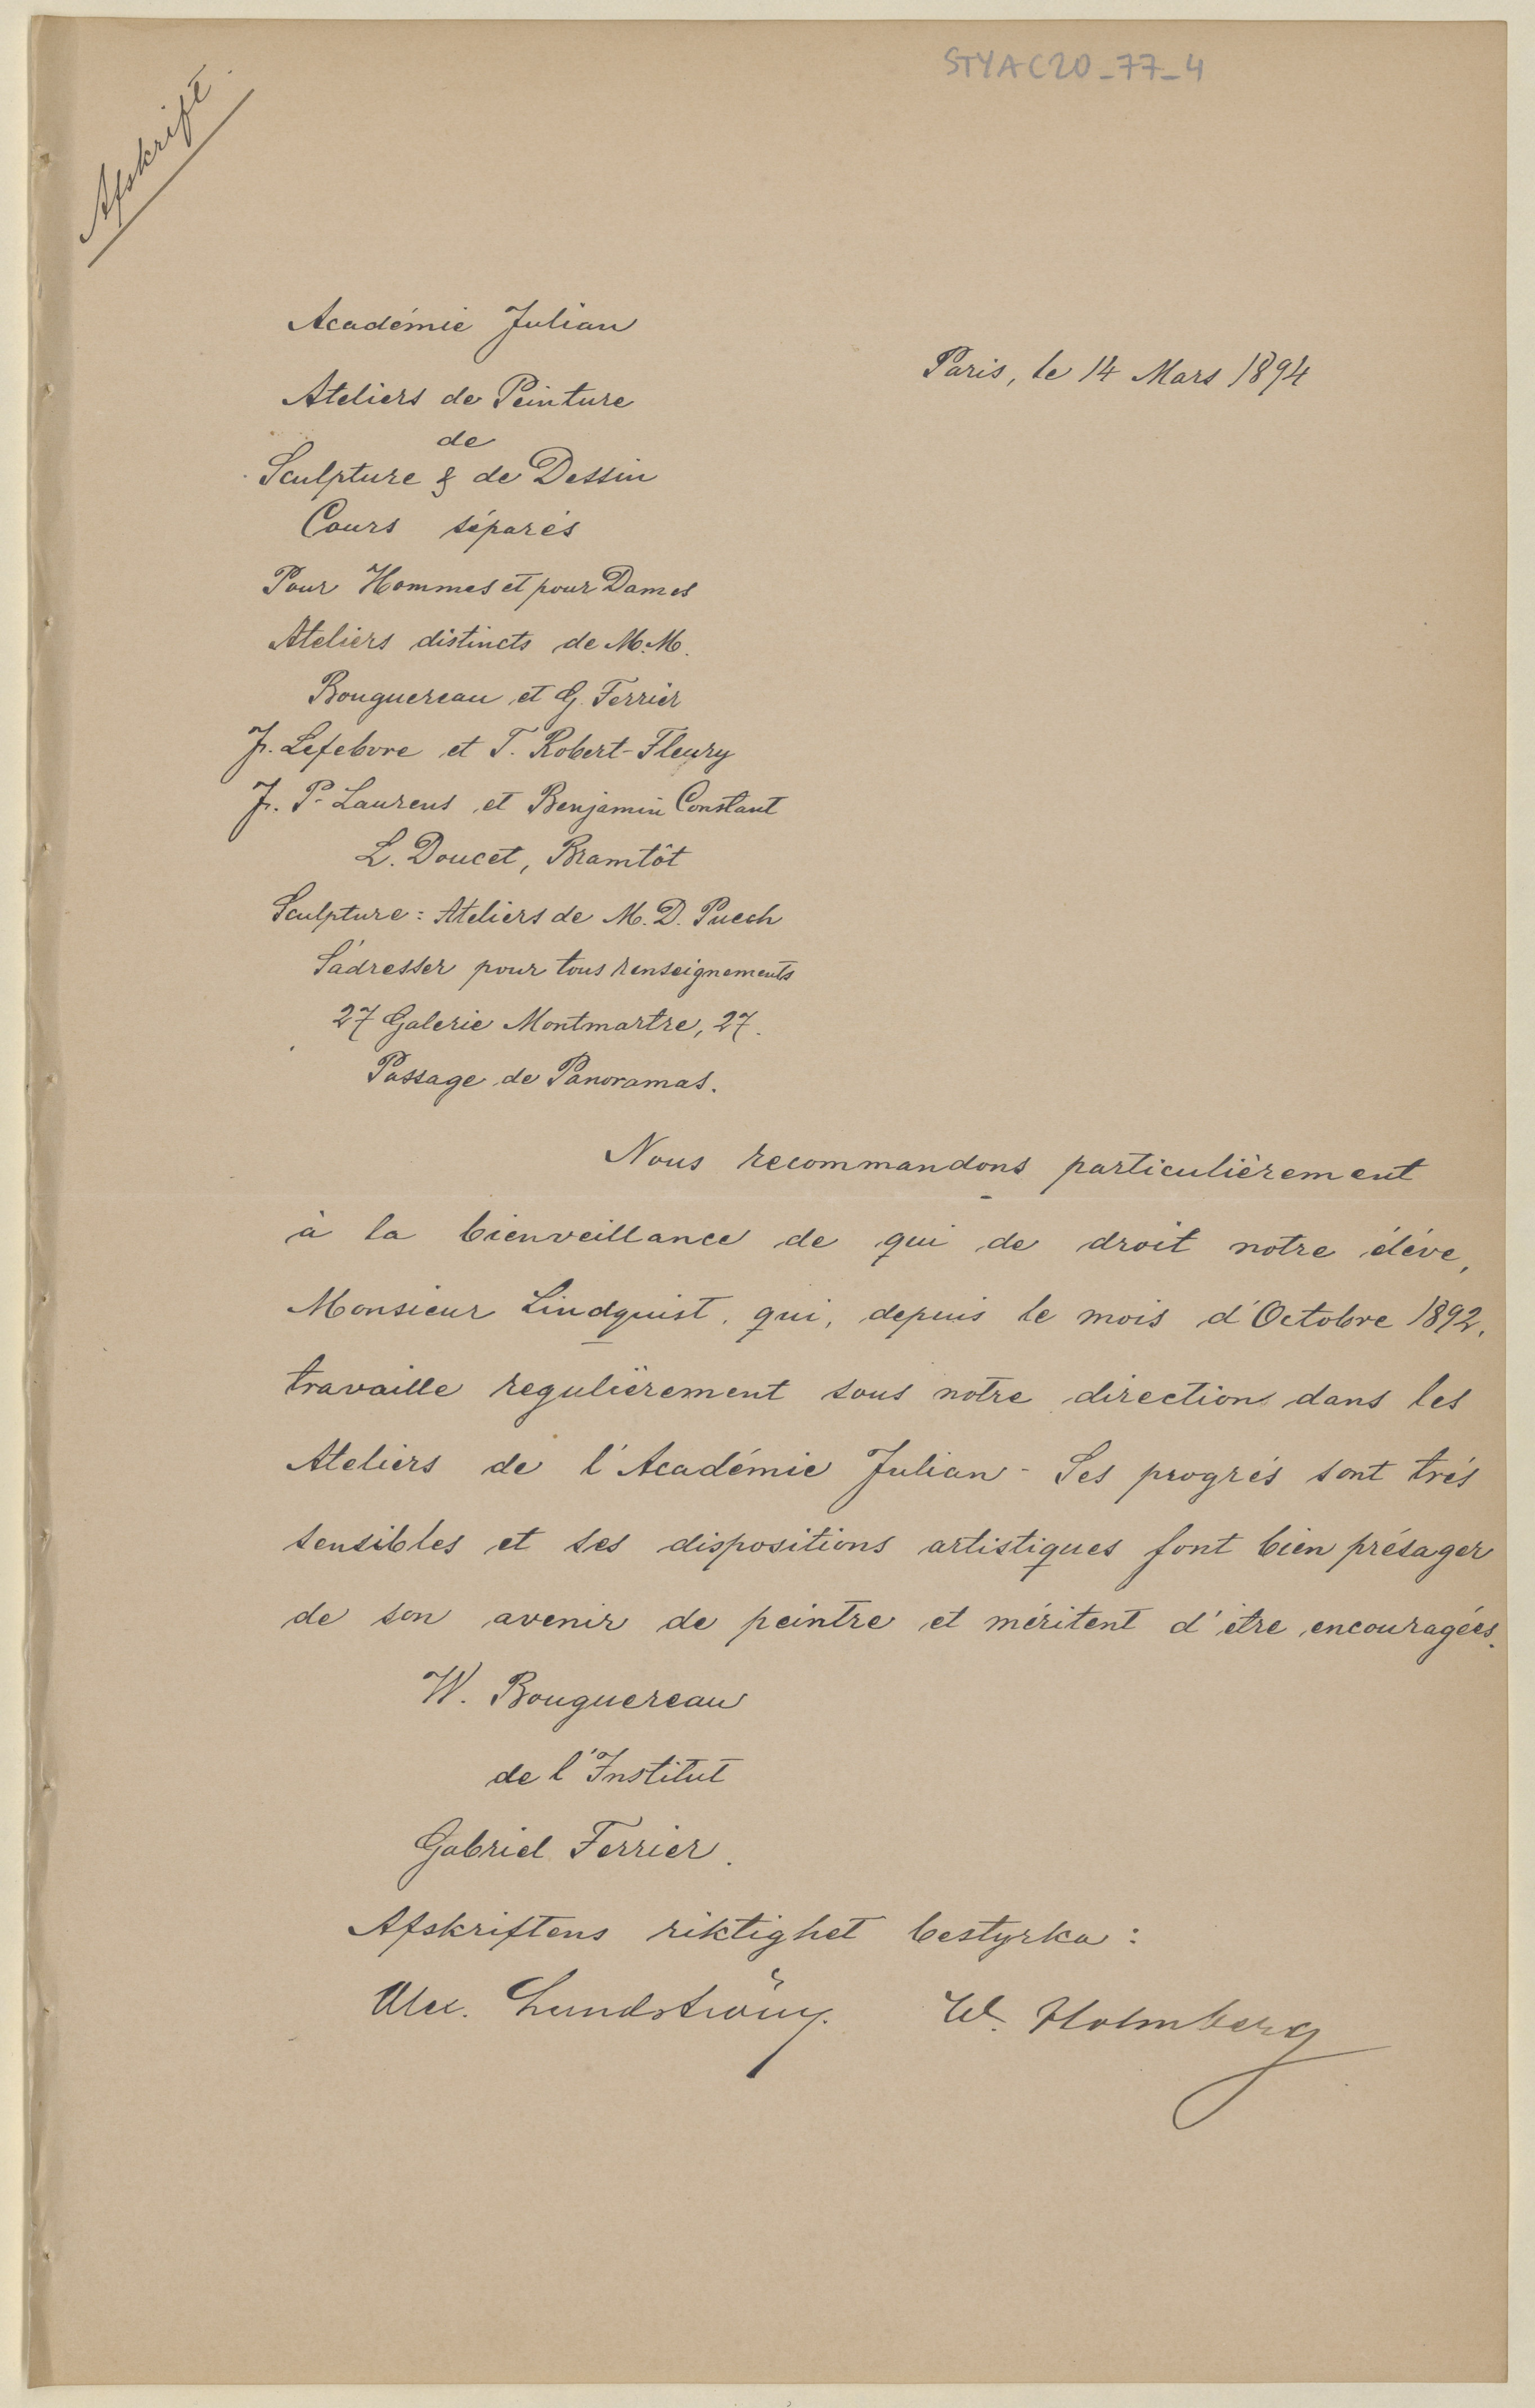 STYAC20_77_4
Afskrift
Académie Julian
Paris, le 14 Mars 1894
Ateliers de Peinture
de
Sculpture & de Dessin
Cours séparés
Pour Hommes et pour Dames
Ateliers distincts de M.M.
Bouguereau et G. Ferrier
J. Lefebvre et T. Robert-Fleury
J. P. Laurens et Benjamin Constant
L. Doucet, Bramtôt
Sculpture: Ateliers de M. D. Puech
S'adresser pour tous renseignements
27 Galerie Montmartre, 27.
Passage de Panoramas.
Nous recommandons particulièrement
à la bienveillance de qui de droit notre éléve,
Monsieur Lindquist, qui, depuis le mois d'Octobre 1892,
travaille regulièrement sous notre direction dans les
Ateliers de l'Académie Julian - Ses progrés sont trés
sensibles et ses dispositions artistiques font bien présager
de son avenir de peintre et méritent d'être encouragées.
W. Bouguereau
de l'Institut
Gabriel Ferrier.
Afskriftens riktighet bestyrka:
Alex. Lundström. W. Holmberg